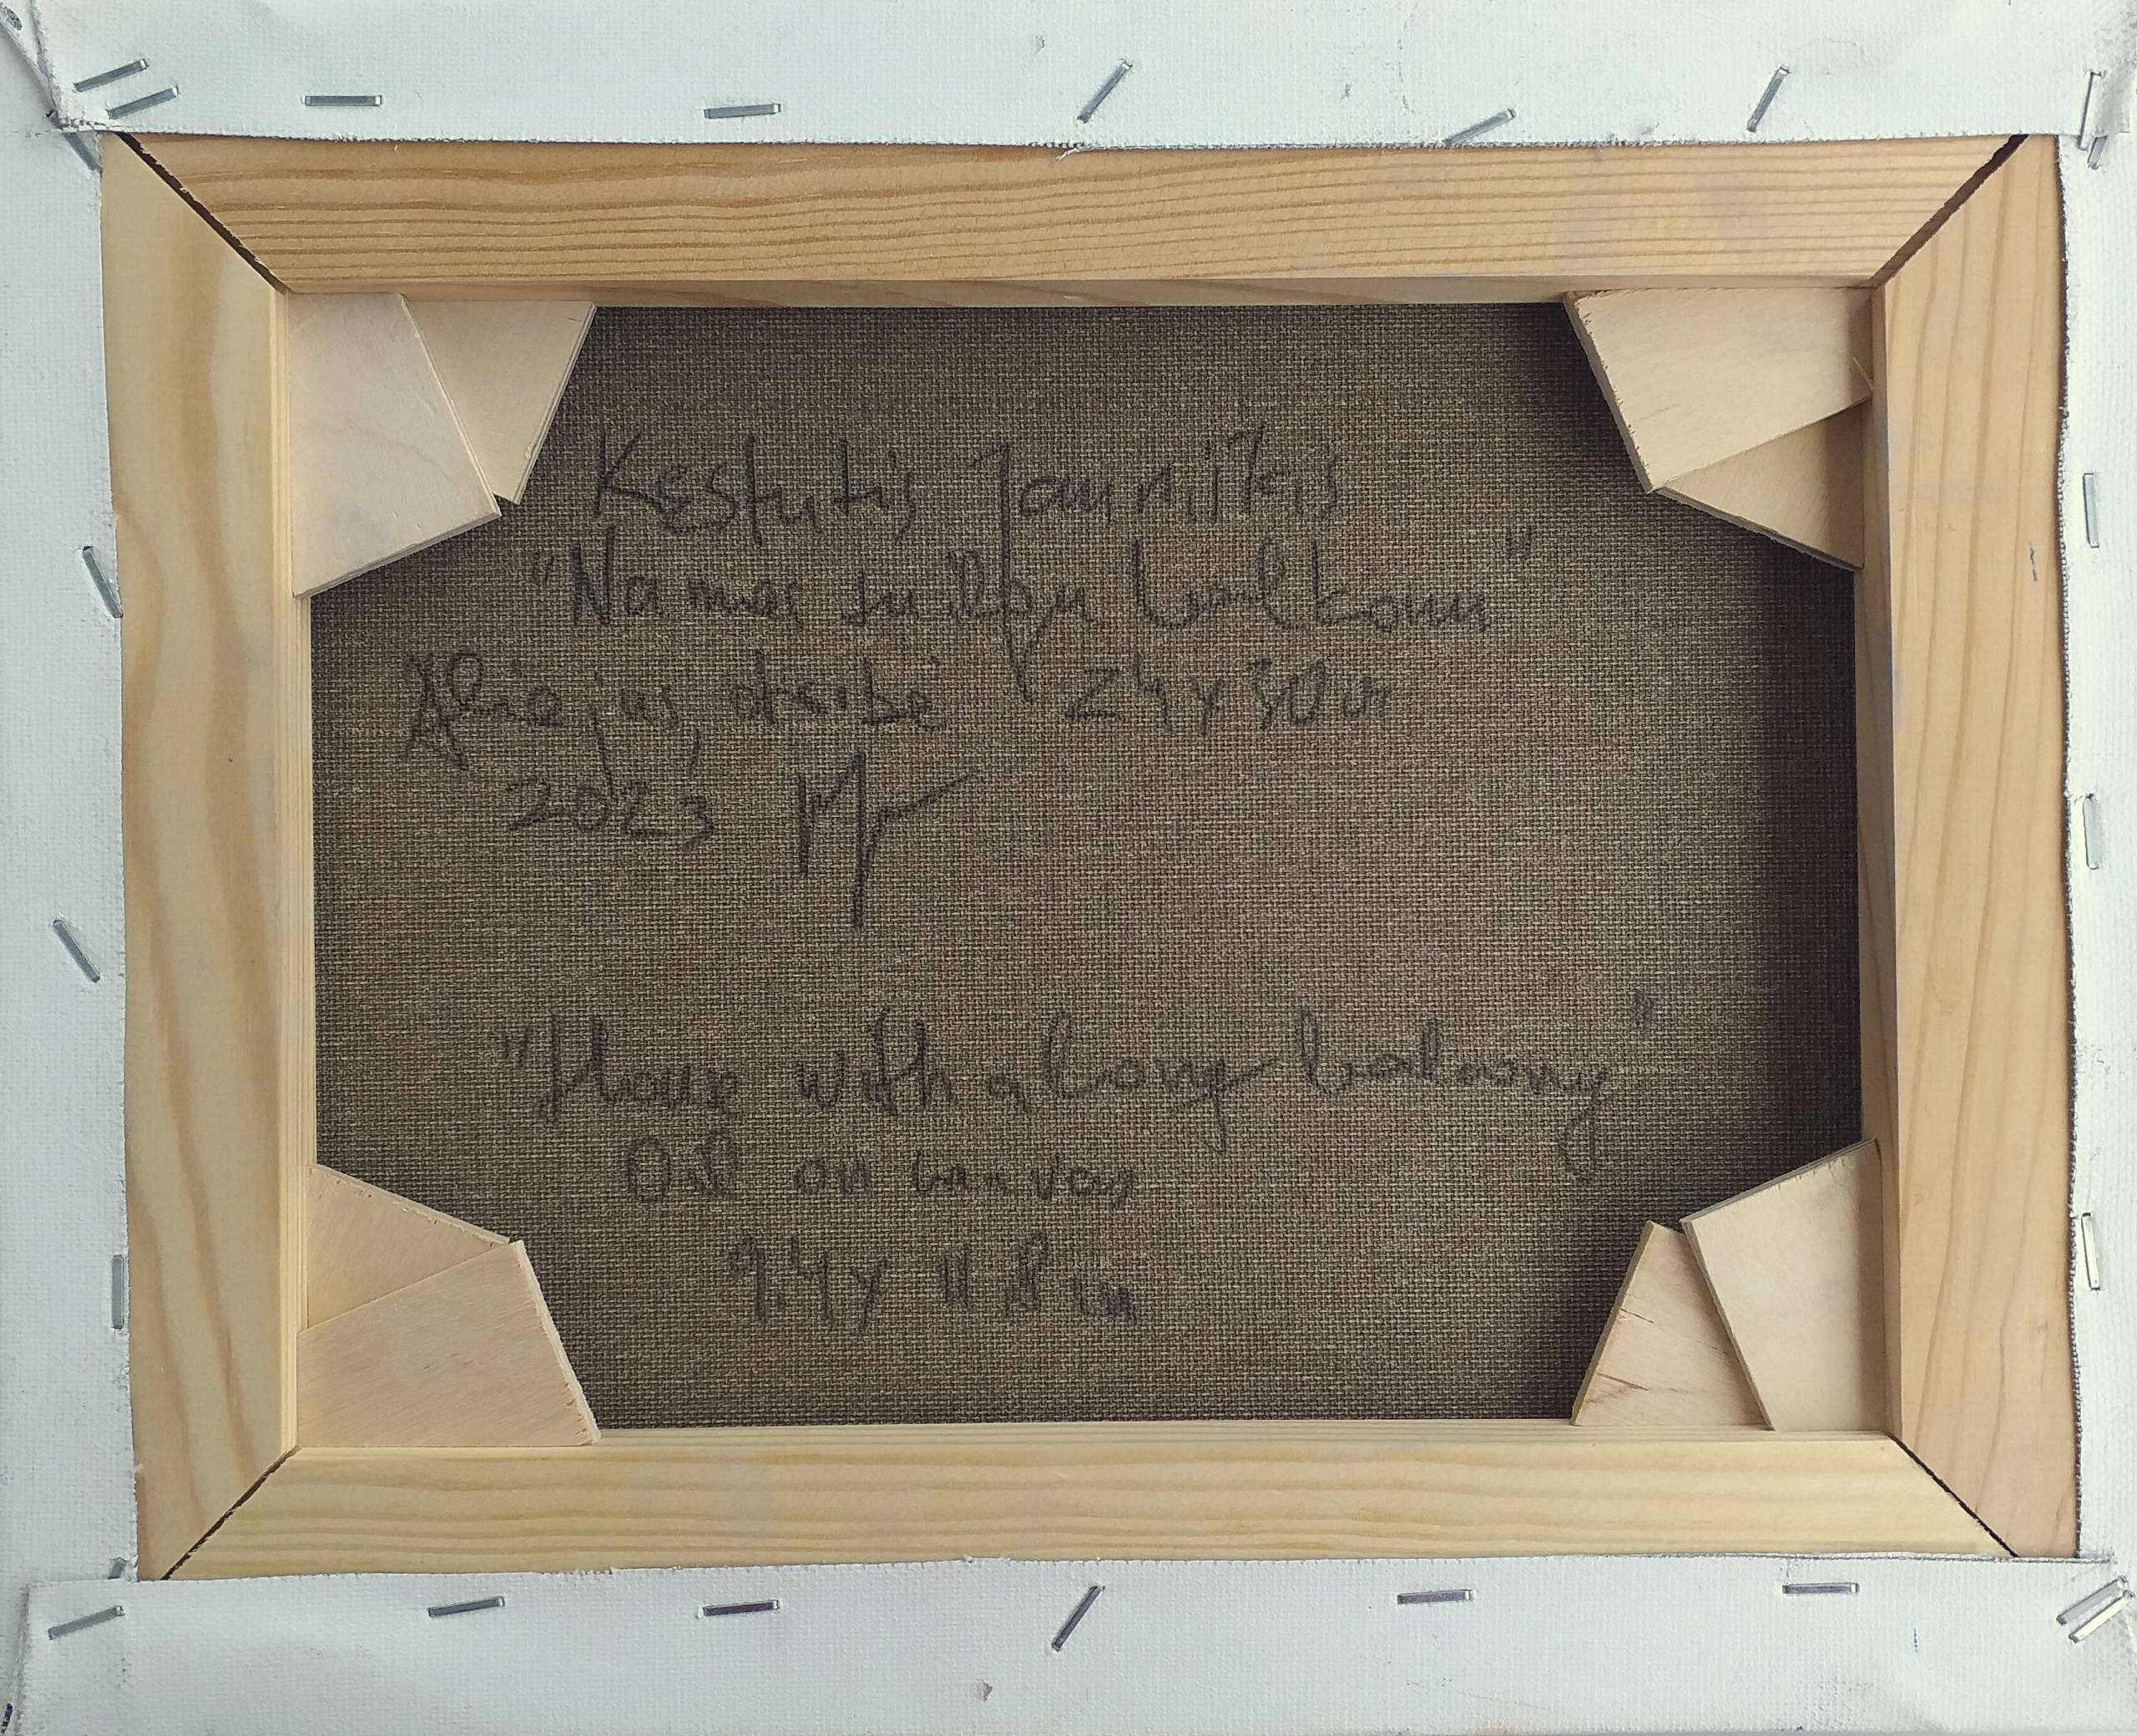 Kęstutis Jauniškis
"Namas su ilgu balkonu"
Aliejus, drobė 24x30cm
2023
"House with a long balcony"
Oil on canvas
9.4x11.8in